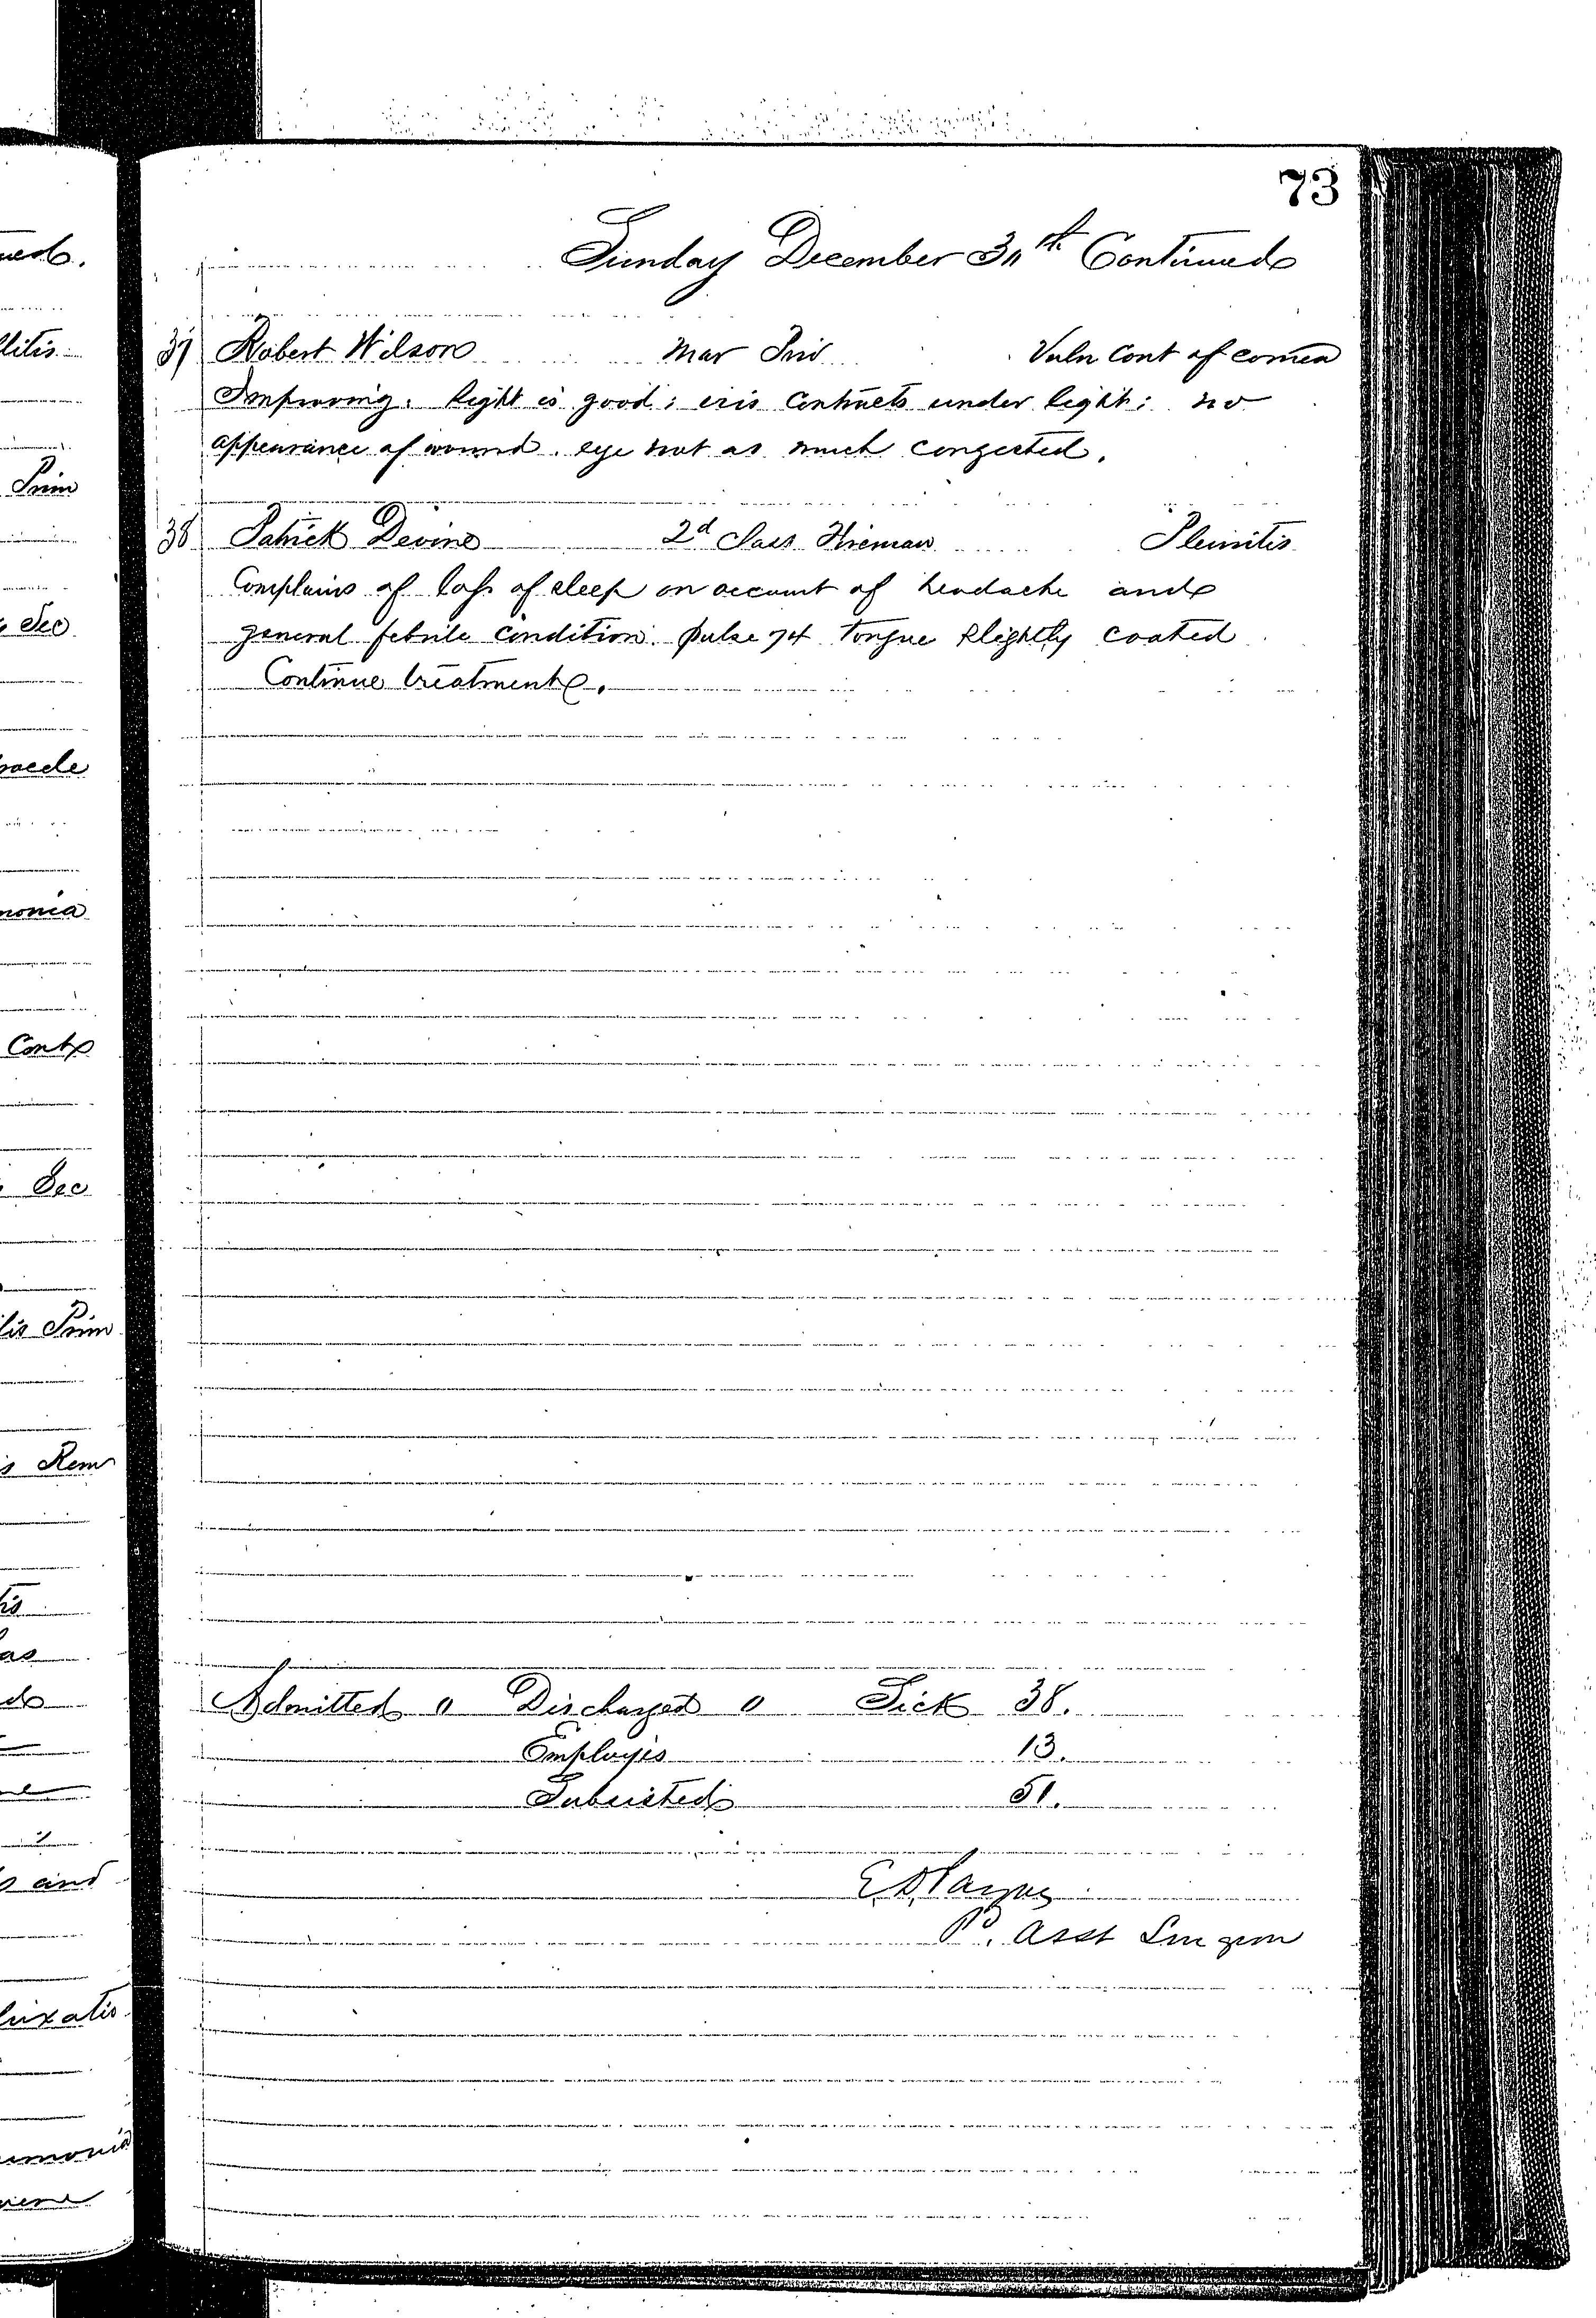 73
Sunday December 30th Continued
37 Robert Wilson Mar Priv Vuln Cont of cornea
Improving. Sight is good; iris contracts under light; no
appearance of wound. eye not as much congested.
38 Patrick Devine 2d Class Fireman Pleuritis
Complains of loss of sleep on account of headache and
general febrile condition. pulse 74 tongue slightly coated
Continue treatment.
Admitted 0 Discharged 0 Sick 38.
Employes 13.
Subsisted 51.
E.D. Payne
Pd. Asst Surgeon
litis
Prim
Sec
monia
Cont
Sec
Prim
Rem
and
luxatio